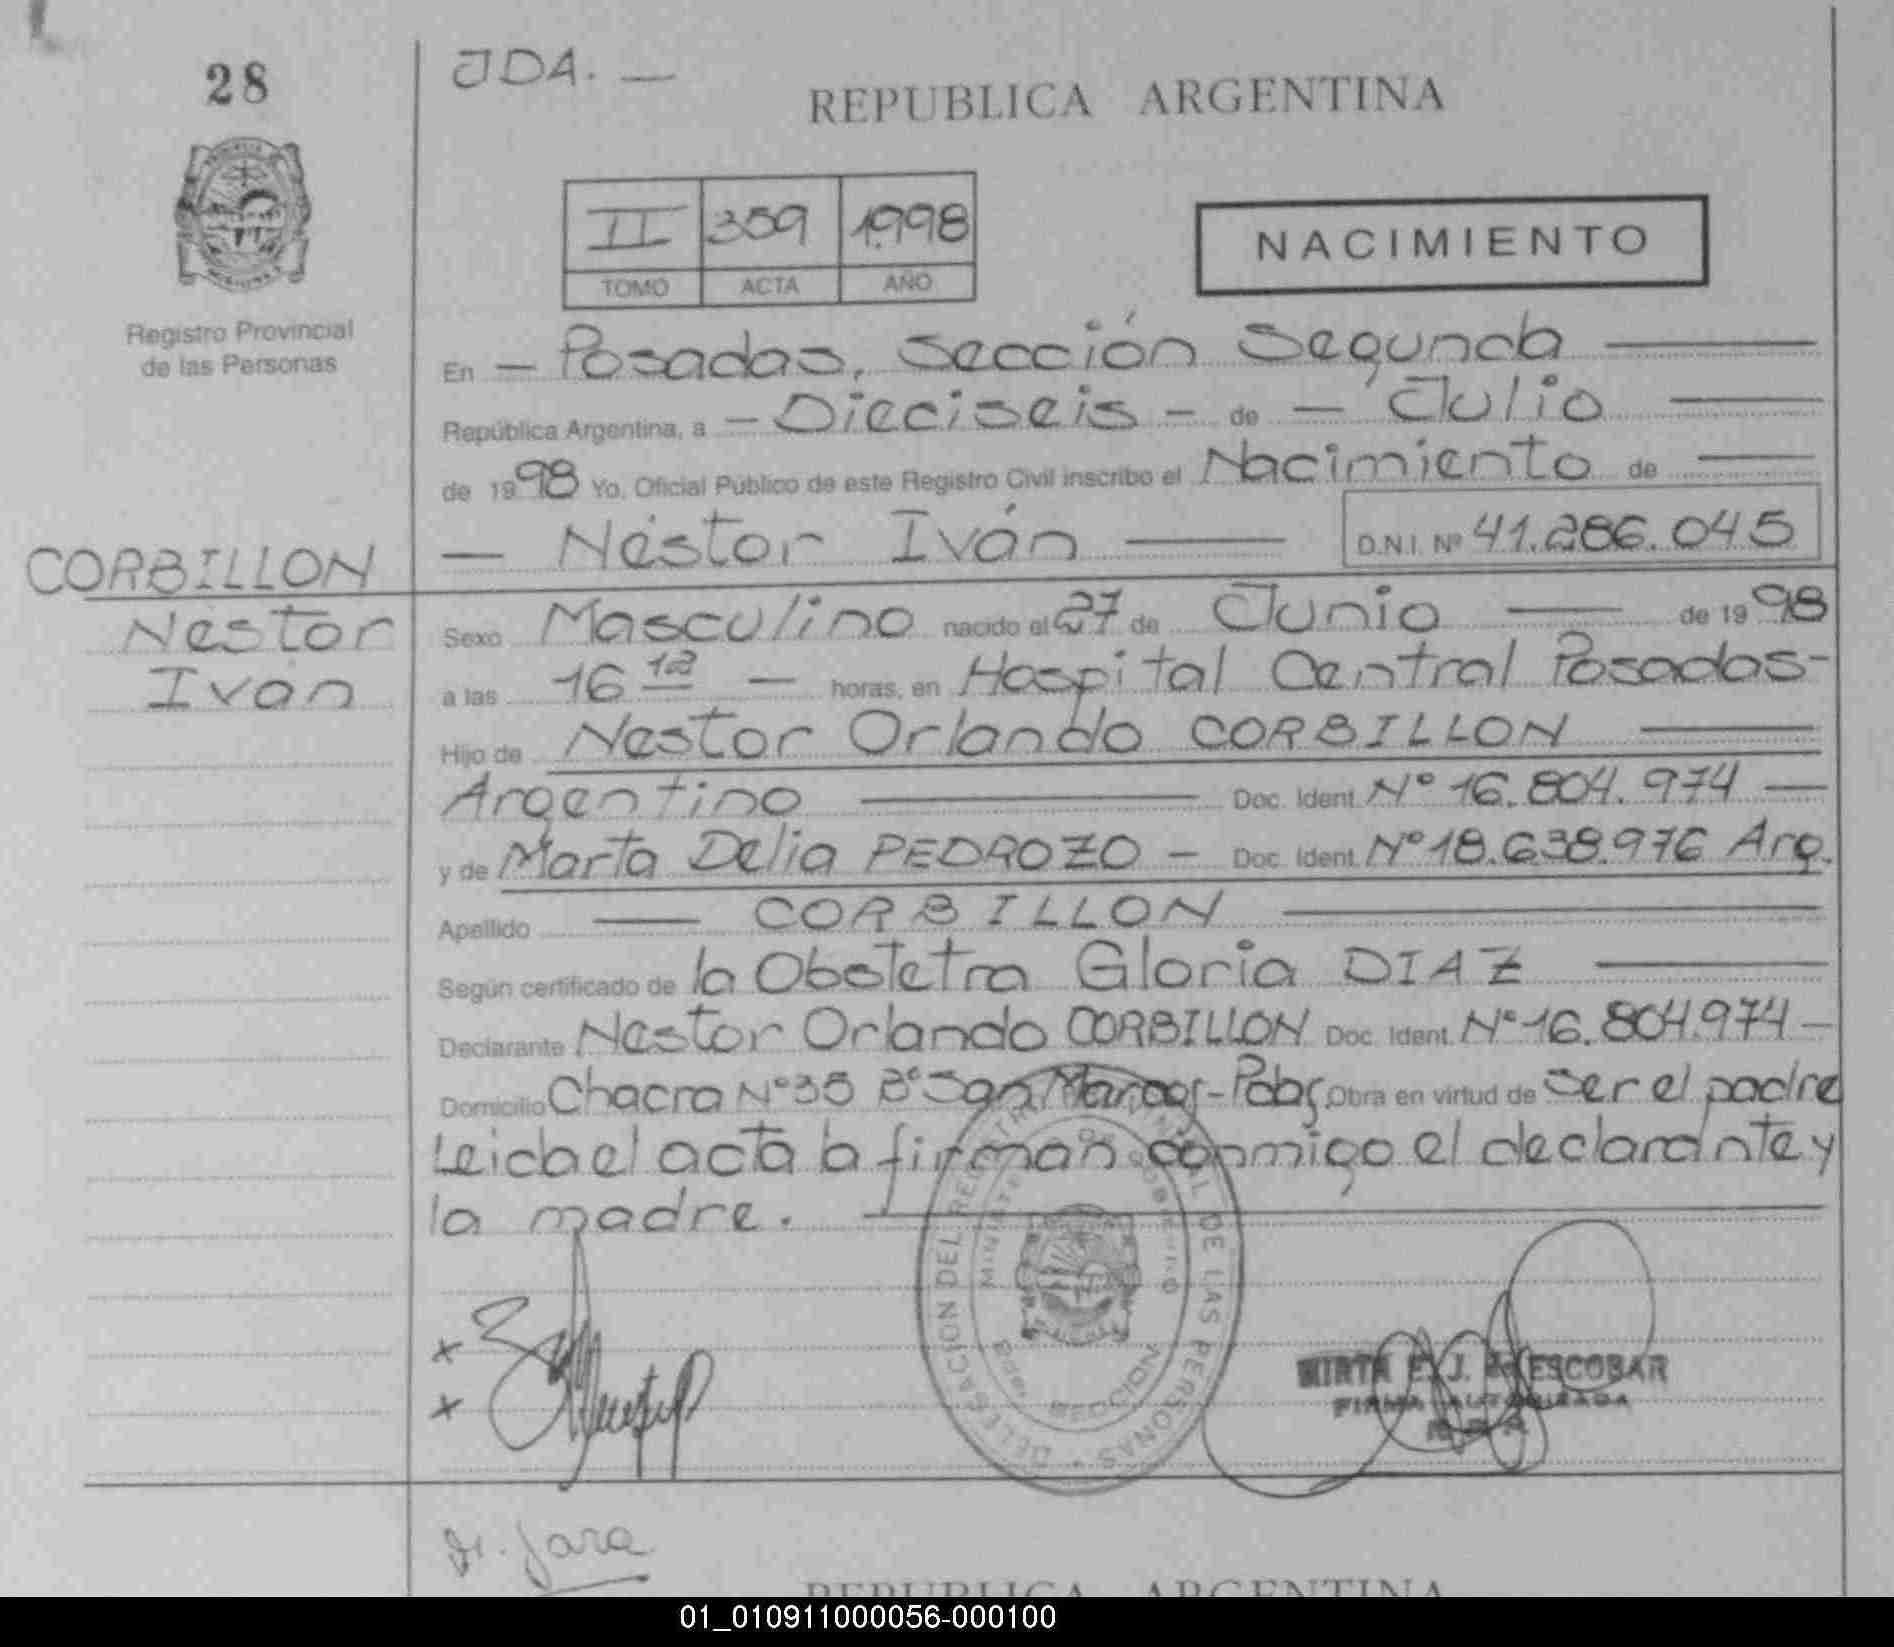 28
JDA. —
REPUBLICA ARGENTINA
II 359 1998
TOMO ACTA AÑO
NACIMIENTO
Registro Provincial
de las Personas
En — Posadas, Sección Segunda —
República Argentina, a — Dieciseis — de — Julio —
de 1998 Yo, Oficial Público de este Registro Civil inscribo el Nacimiento de —
— Néstor Iván — D.N.I. Nº 41.286.045
CORBILLON
Néstor
Iván
Sexo Masculino nacido el 27 de Junio — de 1998
a las 16 12 — horas, en Hospital Central Posadas-
Hijo de Nestor Orlando CORBILLON —
Argentino — Doc. Ident. Nº 16.804.974 —
y de Marta Delia PEDROZO — Doc. Ident. Nº 18.638.976 Arg.
Apellido — CORBILLON —
Según certificado de la Obstetra Gloria DIAZ —
Declarante Nestor Orlando CORBILLON Doc. Ident. Nº 16.804.974 —
Domicilio Chacra Nº 35 Bº San Marcos - Pdas. Obra en virtud de ser el padre
Leida el acta la firman conmigo el declarante y
la madre. —
DELEGACION DEL REGISTRO PROVINCIAL DE LAS PERSONAS
MINISTERIO DE GOBIERNO
SECCION
MIRTA E. J. ESCOBAR
FIRMA AUTORIZADA
Dr. Jara
REPUBLICA ARGENTINA
01_010911000056-000100